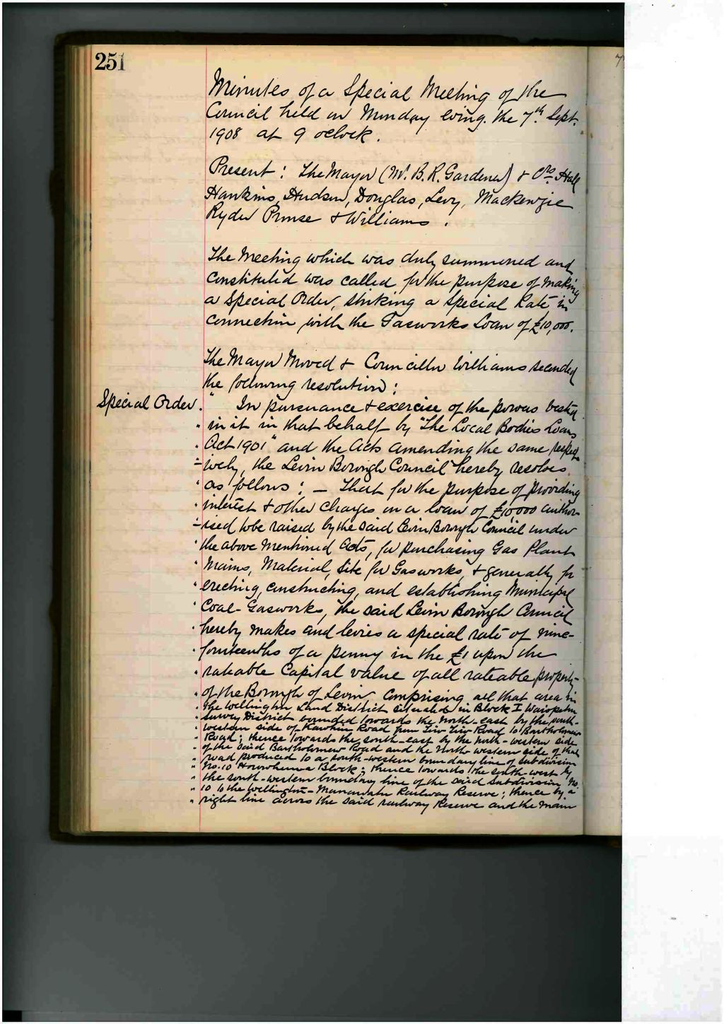 251
Minutes of a Special Meeting of the
Council held on Monday eving. the 7th Sept.
1908 at 9 oclock.
Present: The Mayor (Mr. B. R. Gardener) & Crs Hall
Hankins, Hudson, Douglas, Levy, Mackenzie
Ryder Prouse & Williams.
The Meeting which was duly summoned and
constituted was called for the purpose of making
a Special Order, striking a Special Rate in
connection with the Gasworks Loan of £10,000.
The Mayor Moved & Councillor Williams seconded
the following resolution:
Special Order. " In pursuance & exercise of the powers vested
" in it in that behalf by "The Local Bodies Loans
" Act 1901" and the Acts amending the same respect
=ively, the Levin Borough Council hereby resolves
" as follows: — That for the purpose of providing
" interest & other charges on a loan of £10000 author
=ised to be raised by the said Levin Borough Council under
" the above mentioned Acts, for purchasing Gas Plant
" Mains, Material, Site for Gasworks, & generally for
" erecting, constructing, and establishing Municipal
" Coal-Gasworks, the said Levin Borough Council
" hereby makes and levies a special rate of nine-
" fourteenths of a penny in the £1 upon the
" rateable Capital value of all rateable property
" of the Borough of Levin, comprising all that area in
" the Wellington Land District situated in Block I Waiopehu
" Survey District bounded towards the North-east by the south-
" western side of Kawhiu Road from Tiro Tiro Road to Bartholomew
" Road; thence towards the south-east by the north-western side
" of the said Bartholomew Road and the North western side of that
" road produced to a south-western boundary line of subdivision
" No. 10 Horowhenua Block; thence towards the south-west by
" the south-western boundary line of the said Subdivision No.
" 10 to the Wellington-Manawatu Railway Reserve; thence by a
" right line across the said railway Reserve and the main